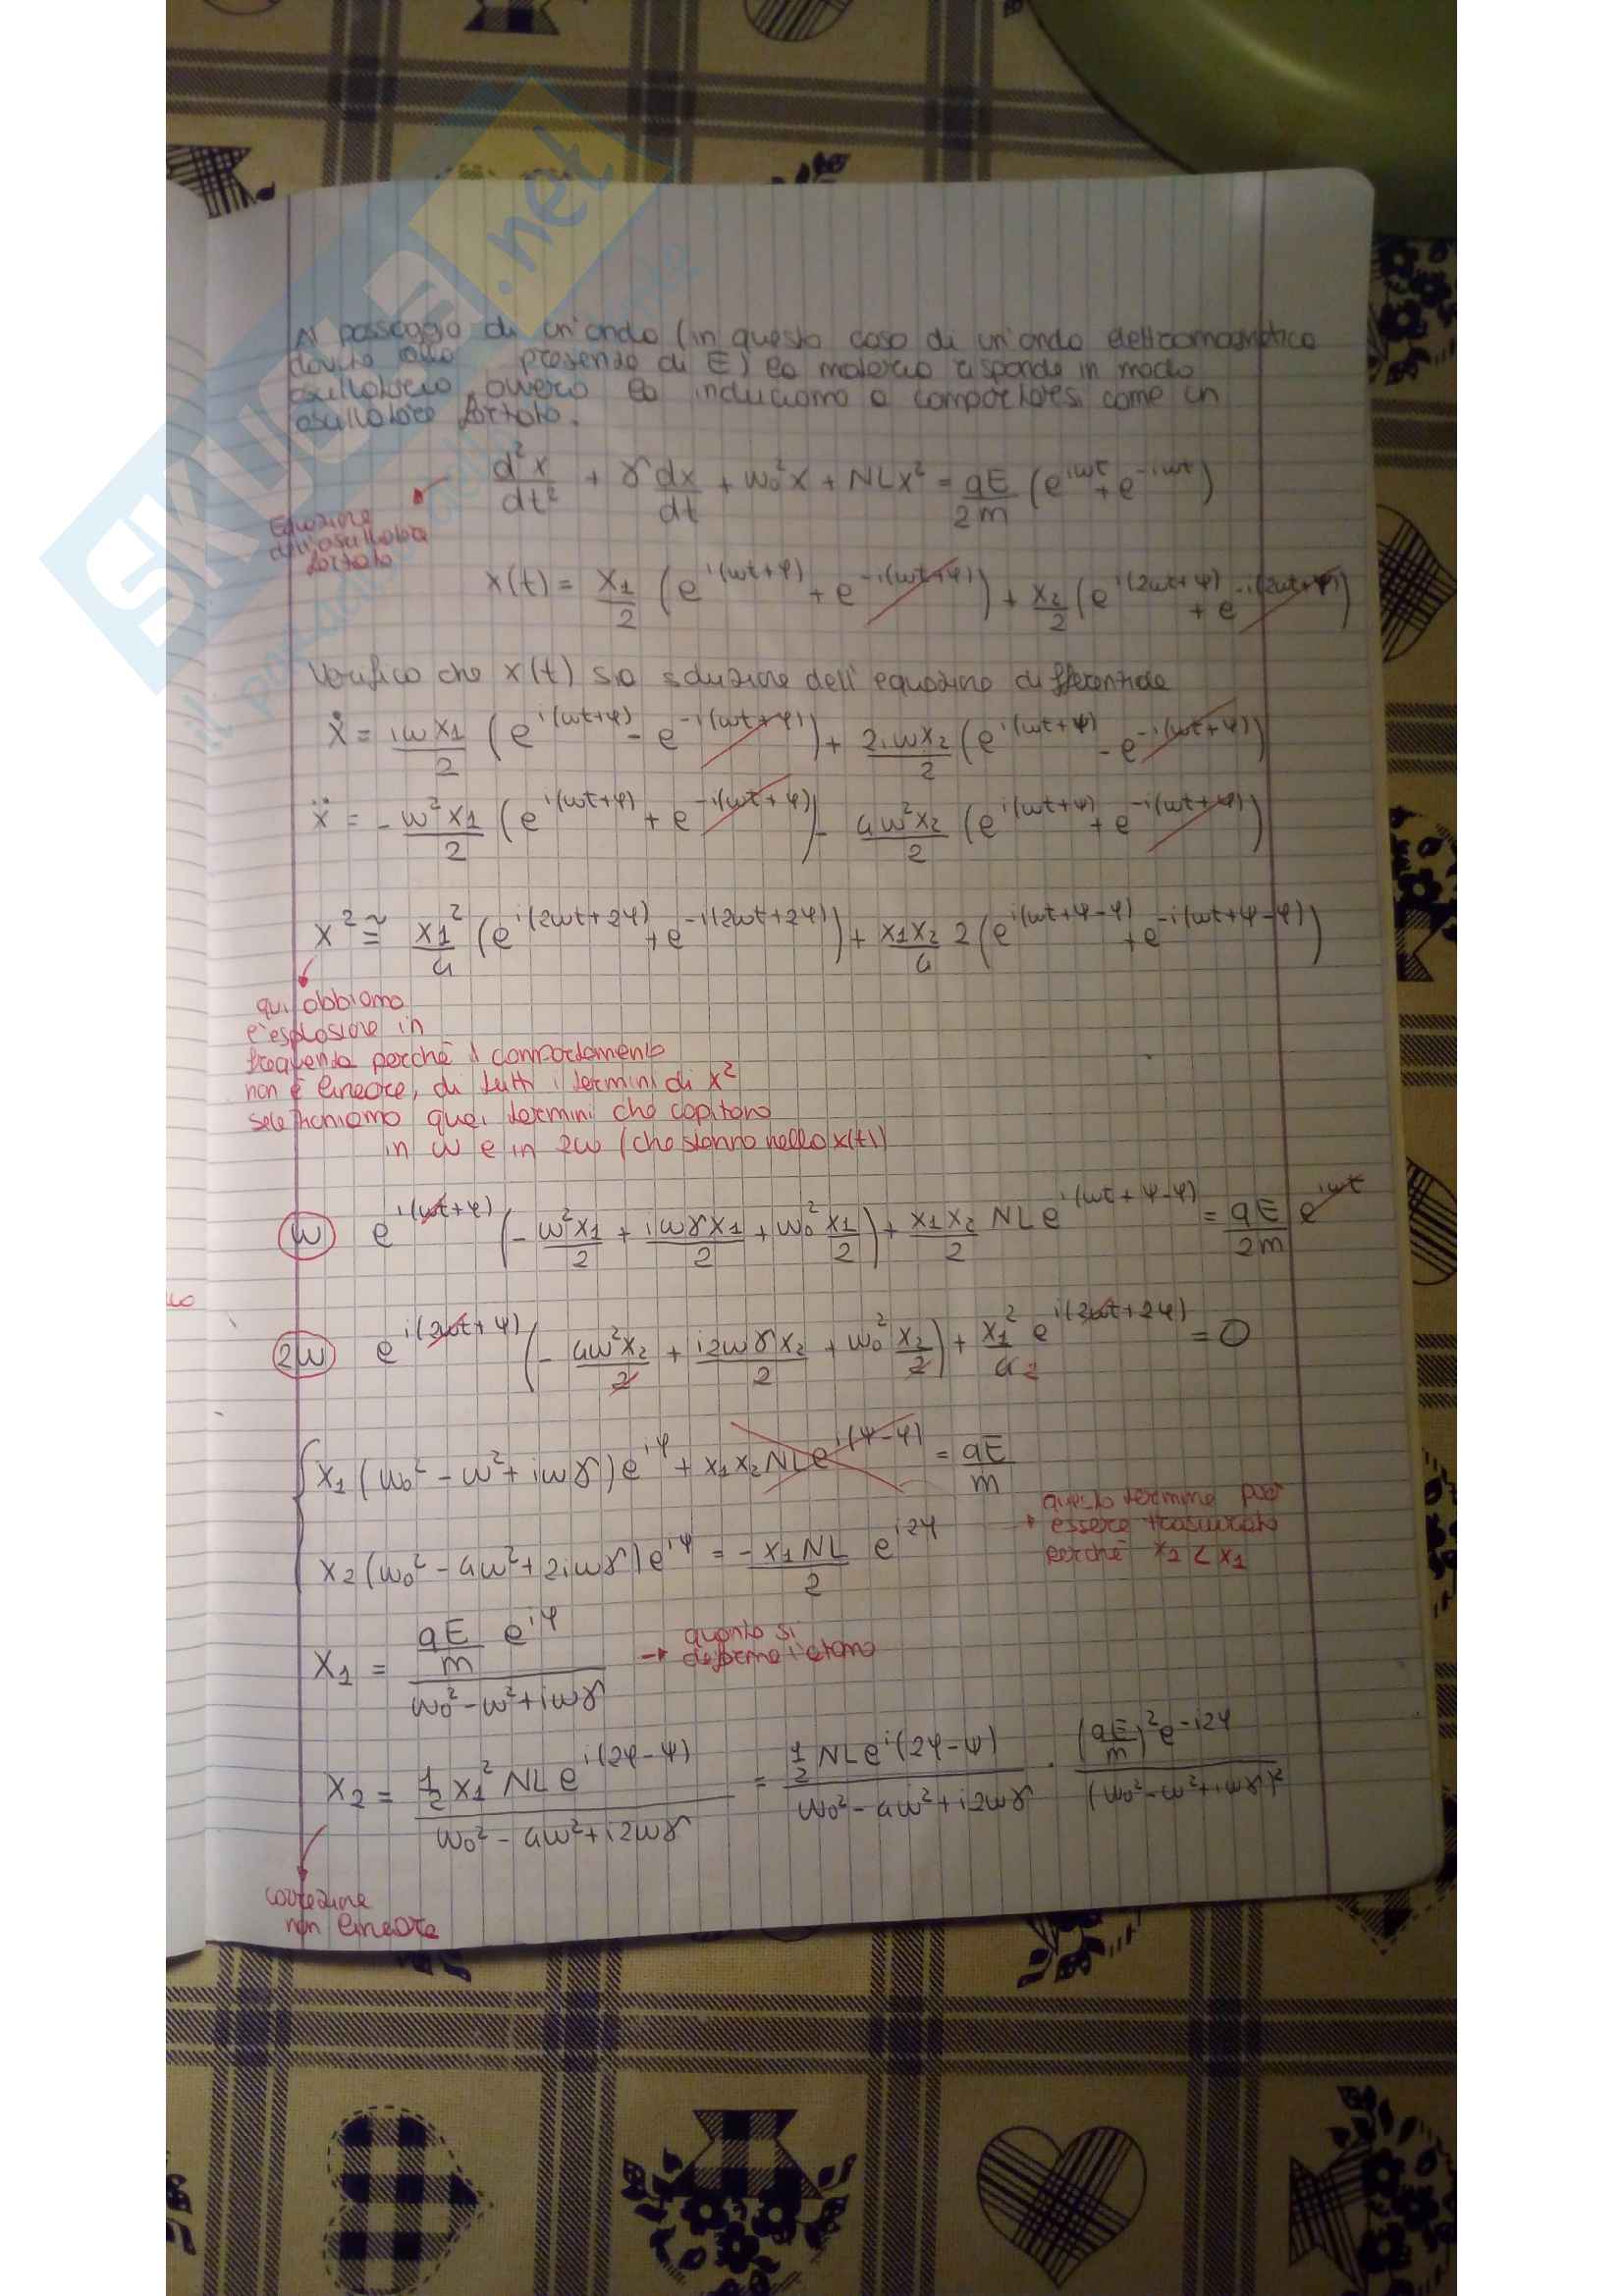 SKUOLA.net
Al passaggio di un'onda (in questo caso di un'onda elettromagnetica
dovuta alla presenza di E) la materia risponde in modo
oscillatorio, ovvero la induciamo a comportarsi come un
oscillatore forzato.
d²x/dt² + γ dx/dt + ω₀²x + NLx² = qE/2m (e^{iωt} + e^{-iωt})
Equazione
dell'oscillatore
forzato
x(t) = x₁/2 (e^{i(ωt+φ)} + e^{-i(ωt+φ)}) + x₂/2 (e^{i(2ωt+ψ)} + e^{-i(2ωt+ψ)})
Verifico che x(t) sia soluzione dell'equazione differenziale
ẋ = iωx₁/2 (e^{i(ωt+φ)} - e^{-i(ωt+φ)}) + 2iωx₂/2 (e^{i(ωt+ψ)} - e^{-i(ωt+ψ)})
ẍ = -ω²x₁/2 (e^{i(ωt+φ)} + e^{-i(ωt+φ)}) - 4ω²x₂/2 (e^{i(ωt+ψ)} + e^{-i(ωt+ψ)})
x² ≅ x₁²/4 (e^{i(2ωt+2φ)} + e^{-i(2ωt+2φ)}) + x₁x₂/4 2 (e^{i(ωt+ψ-φ)} + e^{-i(ωt+ψ-φ)})
qui abbiamo
l'esplosione in
frequenza perché il comportamento
non è lineare, di tutti i termini di x²
selezioniamo quei termini che capitano
in ω e in 2ω (che stanno nella x(t))
ω e^{i(ωt+φ)} (-ω²x₁/2 + iωγx₁/2 + ω₀² x₁/2) + x₁x₂/2 NL e^{i(ωt+ψ-φ)} = qE/2m e^{iωt}
2ω e^{i(2ωt+ψ)} (-4ω²x₂/2 + i2ωγx₂/2 + ω₀² x₂/2) + x₁²/4 2 e^{i(2ωt+2φ)} = 0
x₁(ω₀² - ω² + iωγ)e^{iφ} + x₁x₂NLe^{i(ψ-φ)} = qE/m
questo termine può
essere trascurato
perché x₂ < x₁
x₂(ω₀² - 4ω² + 2iωγ)e^{iψ} = -x₁NL/2 e^{i2φ}
x₁ = qE/m e^{iφ} / ω₀² - ω² + iωγ
quanto si
deforma l'atomo
x₂ = 1/2 x₁² NL e^{i(2φ-ψ)} / ω₀² - 4ω² + i2ωγ = 1/2 NL e^{i(2φ-ψ)} / ω₀² - 4ω² + i2ωγ · (qE/m)² e^{-i2φ} / (ω₀² - ω² + iωγ)²
correzione
non lineare